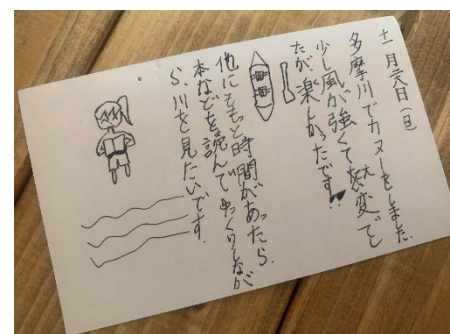 十一月六日(日)
多摩川でカヌーをしました.
少し風が強くて大変でし
たが、楽しかったです!!
他にももっと時間があったら、
本などを読んでゆっくりしなが
ら、川を見たいです.